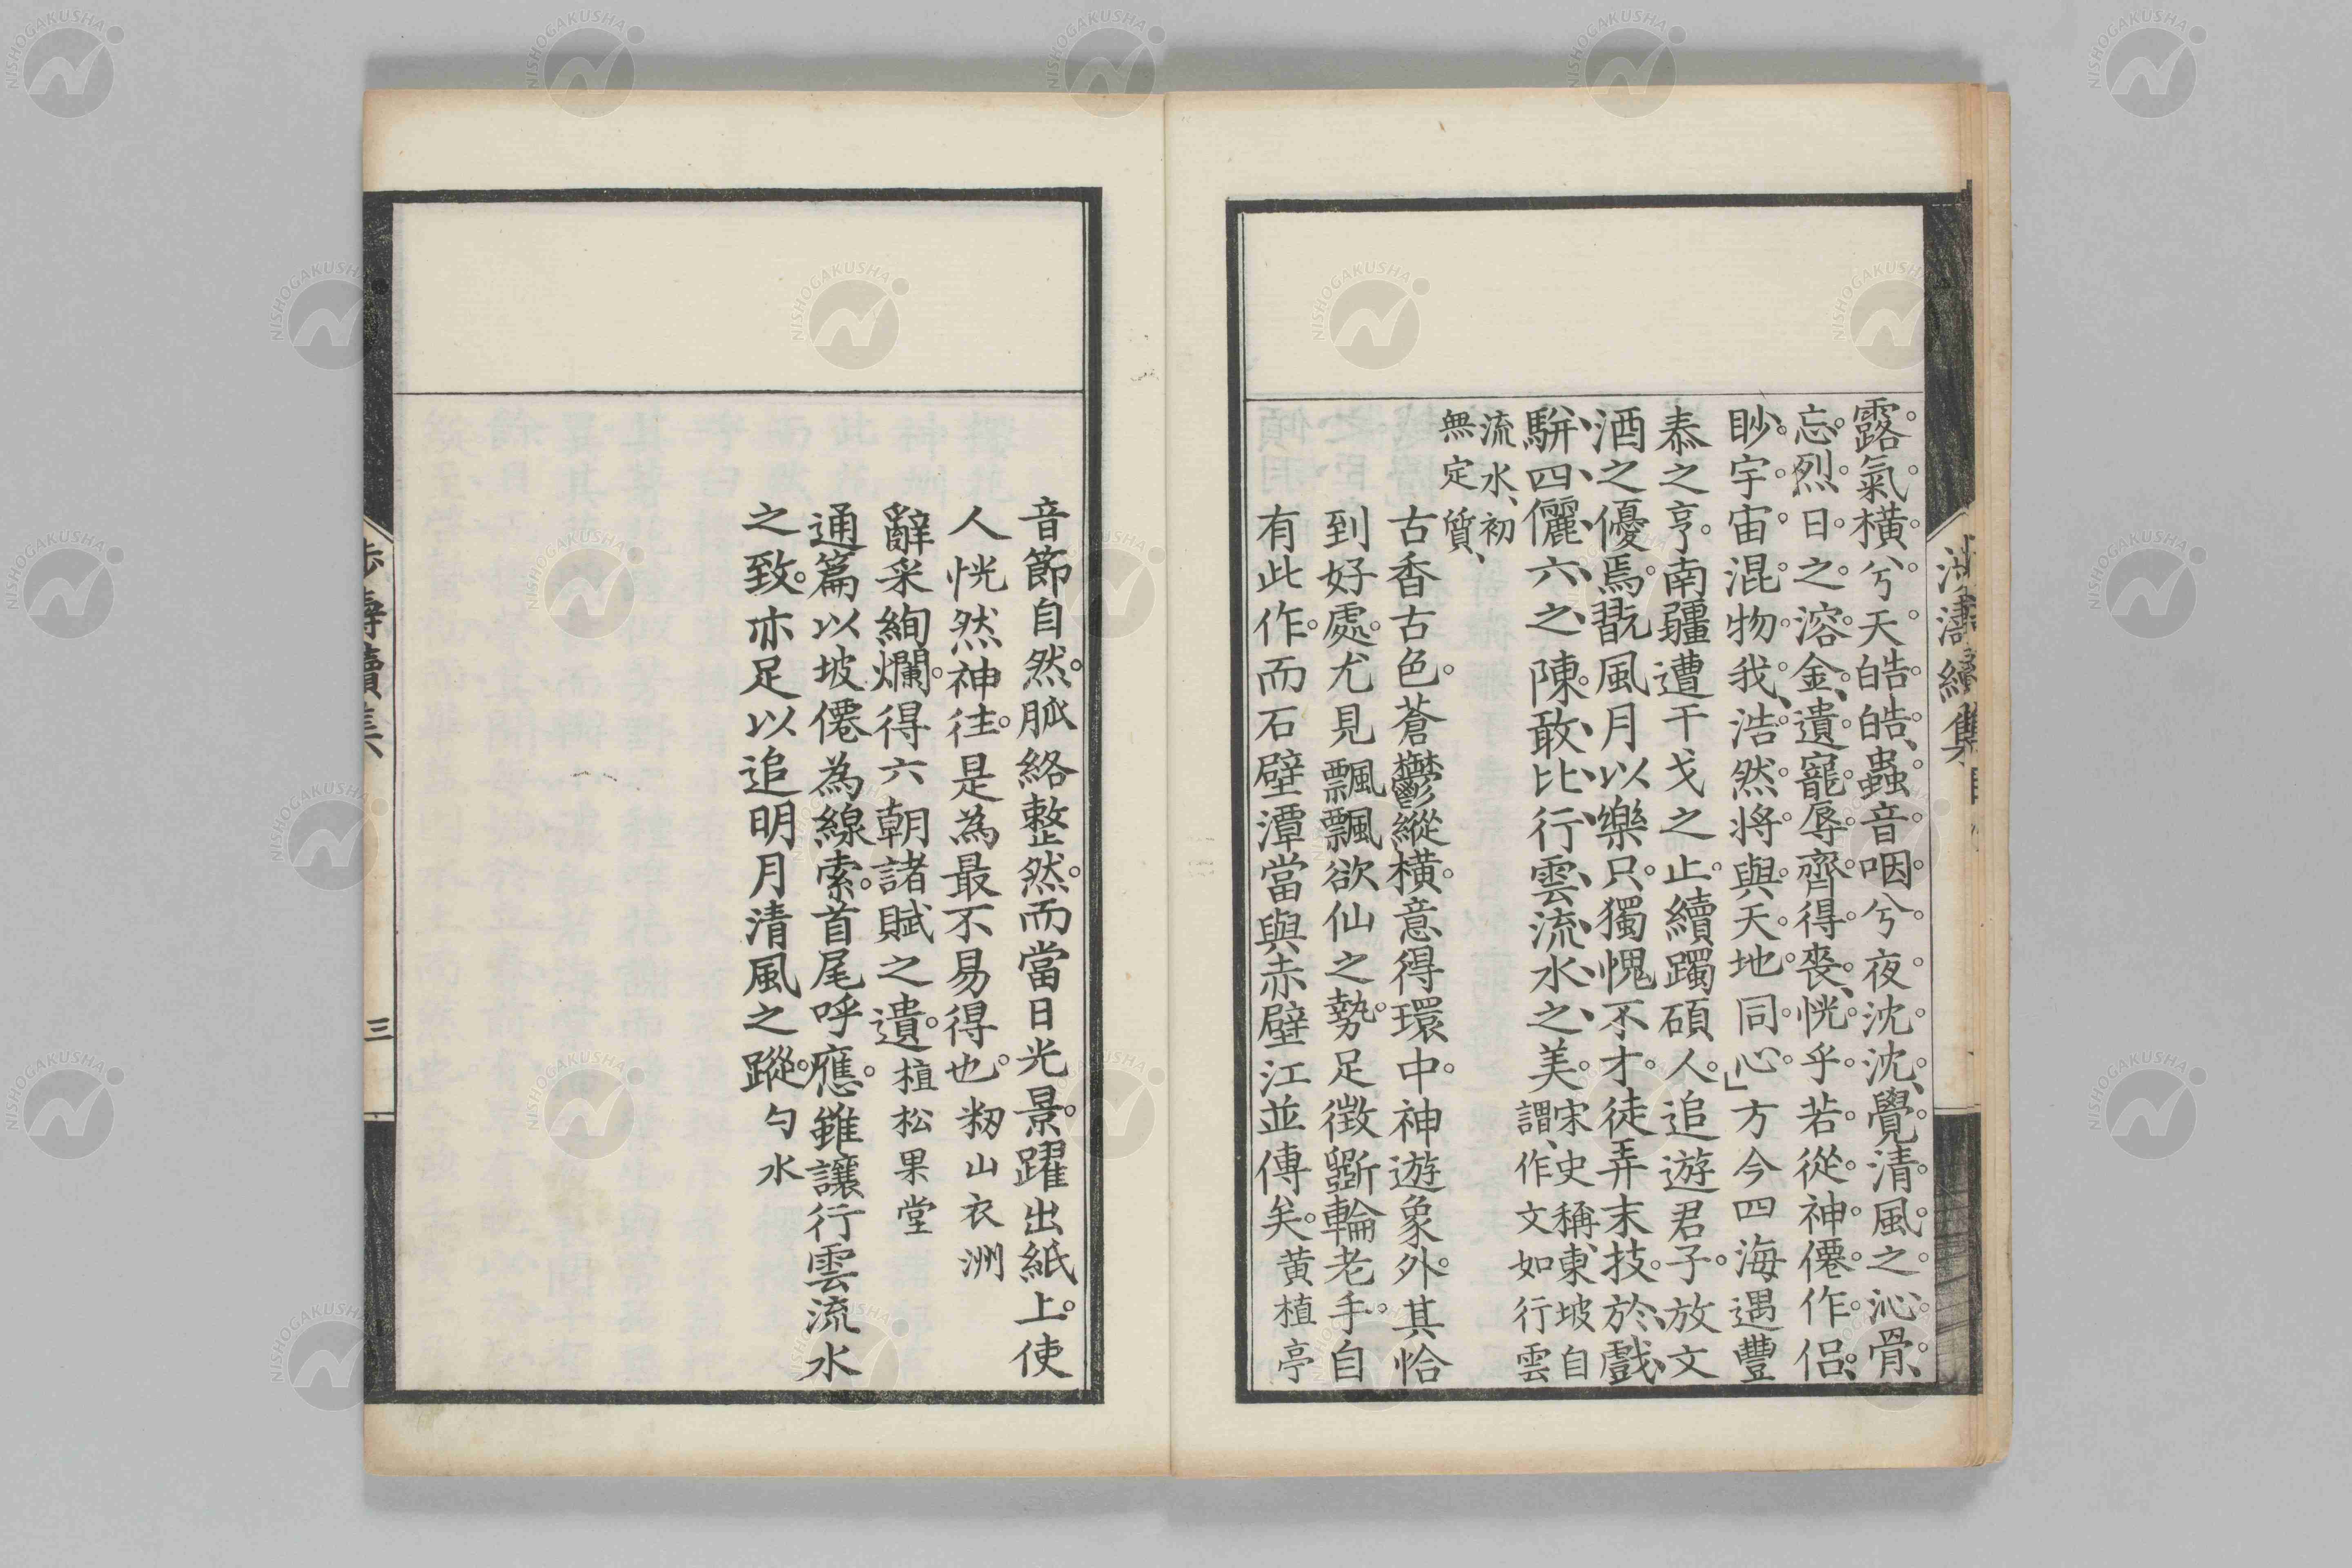 露氣橫兮天皓皓、蟲音咽兮夜沈沈、覺清風之沁骨、
忘烈日之溶金、遺寵辱齊得喪、恍乎若從神僊作侶、
眇宇宙混物我、浩然將與天地同心」方今四海遇豐
泰之亨。南疆遭干戈之止。續躅碩人。追遊君子。放文
酒之優焉。翫風月以樂只。獨愧不才。徒弄末技。於戲、
駢四儷六之陳。敢比行雲流水之美。宋史稱、東坡自
謂、作文如行雲
流水、初
無定質、
古香古色。蒼鬱縱橫。意得環中。神遊象外。其恰
到好處。尤見飄飄欲仙之勢。足徵斲輪老手。自
有此作。而石壁潭當與赤壁江並傳矣。黃植亭
音節自然。脈絡整然。而當日光景。躍出紙上。使
人恍然神往。是為最不易得也。籾山衣洲
辭采絢爛。得六朝諸賦之遺。植松果堂
通篇以坡僊為線索。首尾呼應。雖讓行雲流水
之致。亦足以追明月清風之蹤。勻水
三